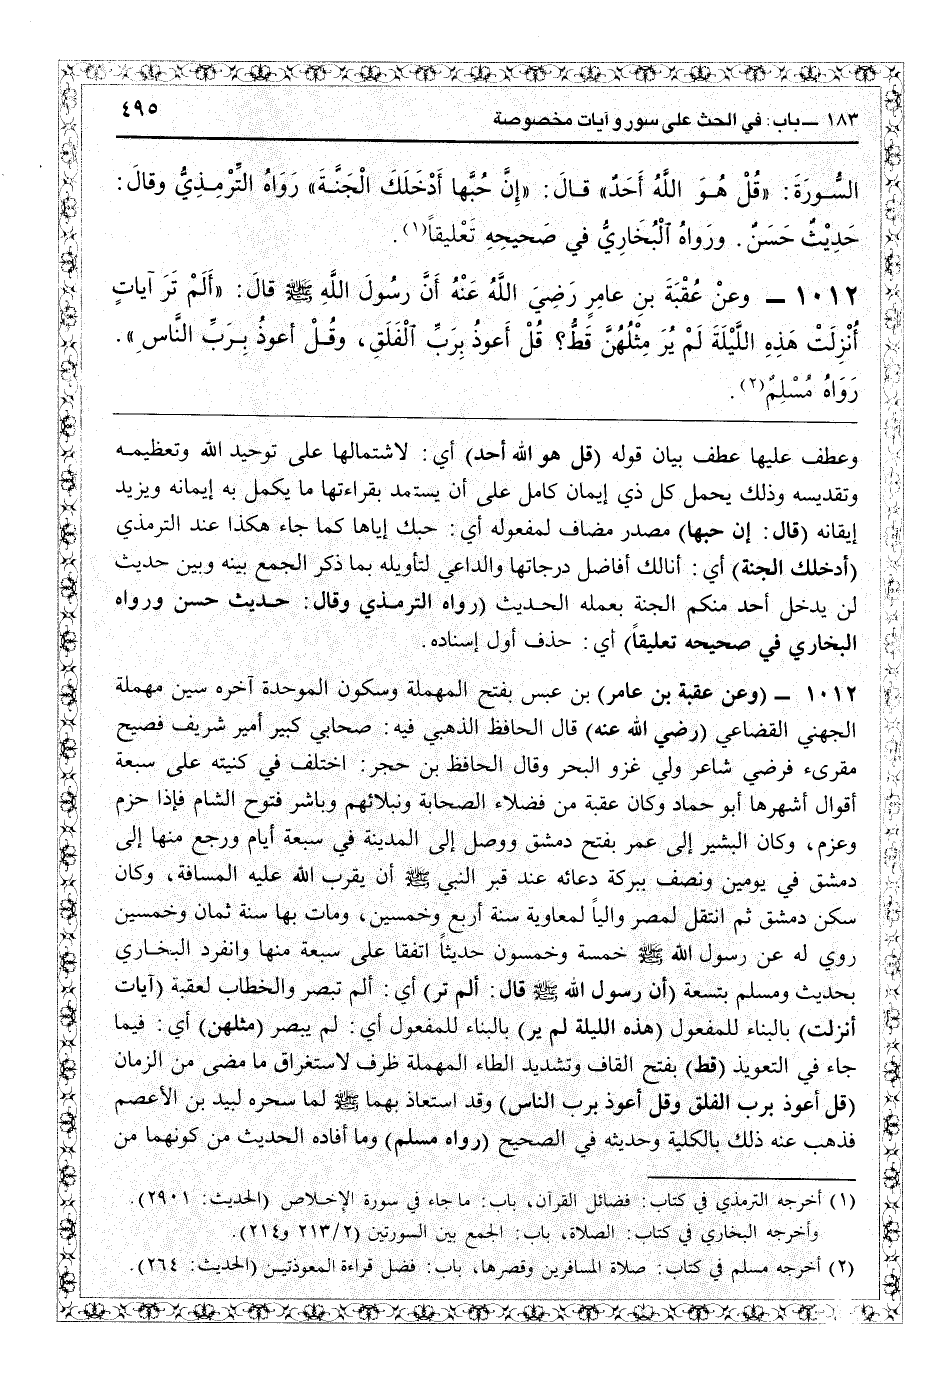 ١٨٣ ـ باب: في الحث على سور و آيات مخصوصة
٤٩٥
السُّورَةَ: «قُلْ هُوَ اللَّهُ أَحَدٌ» قالَ: «إِنَّ حُبَّها أَدْخَلَكَ الْجَنَّةَ» رَوَاهُ التِّرْمِذِيُّ وقالَ:
حَدِيْثٌ حَسَنٌ. ورَواهُ الْبُخَارِيُّ في صَحيحِهِ تَعْليقاً(١).
١٠١٢ ـ وعنْ عُقْبَةَ بنِ عامِرٍ رَضِيَ اللَّهُ عَنْهُ أَنَّ رسُولَ اللَّهِ ﷺ قالَ: «أَلَمْ تَرَ آياتٍ
أُنْزِلَتْ هَذِهِ اللَّيْلَةَ لَمْ يُرَ مِثْلُهُنَّ قَطُّ؟ قُلْ أَعوذُ بِرَبِّ الْفَلَقِ، وقُلْ أعوذُ بِرَبِّ النَّاسِ».
رَوَاهُ مُسْلِمٌ(٢).
وعطف عليها عطف بيان قوله (قل هو الله أحد) أي: لاشتمالها على توحيد الله وتعظيمه
وتقديسه وذلك يحمل كل ذي إيمان كامل على أن يستمد بقراءتها ما يكمل به إيمانه ويزيد
إيقانه (قال: إن حبها) مصدر مضاف لمفعوله أي: حبك إياها كما جاء هكذا عند الترمذي
(أدخلك الجنة) أي: أنالك أفاضل درجاتها والداعي لتأويله بما ذكر الجمع بينه وبين حديث
لن يدخل أحد منكم الجنة بعمله الحديث (رواه الترمذي وقال: حديث حسن ورواه
البخاري في صحيحه تعليقاً) أي: حذف أول إسناده.
١٠١٢ ـ (وعن عقبة بن عامر) بن عبس بفتح المهملة وسكون الموحدة آخره سين مهملة
الجهني القضاعي (رضي الله عنه) قال الحافظ الذهبي فيه: صحابي كبير أمير شريف فصيح
مقرىء فرضي شاعر ولي غزو البحر وقال الحافظ بن حجر: اختلف في كنيته على سبعة
أقوال أشهرها أبو حماد وكان عقبة من فضلاء الصحابة ونبلائهم وباشر فتوح الشام فإذا حزم
وعزم، وكان البشير إلى عمر بفتح دمشق ووصل إلى المدينة في سبعة أيام ورجع منها إلى
دمشق في يومين ونصف ببركة دعائه عند قبر النبي ﷺ أن يقرب الله عليه المسافة، وكان
سكن دمشق ثم انتقل لمصر والياً لمعاوية سنة أربع وخمسين، ومات بها سنة ثمان وخمسين
روي له عن رسول الله ﷺ خمسة وخمسون حديثاً اتفقا على سبعة منها وانفرد البخاري
بحديث ومسلم بتسعة (أن رسول الله ﷺ قال: ألم تر) أي: ألم تبصر والخطاب لعقبة (آيات
أنزلت) بالبناء للمفعول (هذه الليلة لم ير) بالبناء للمفعول أي: لم يبصر (مثلهن) أي: فيما
جاء في التعويذ (قط) بفتح القاف وتشديد الطاء المهملة ظرف لاستغراق ما مضى من الزمان
(قل أعوذ برب الفلق وقل أعوذ برب الناس) وقد استعاذ بهما ﷺ لما سحره لبيد بن الأعصم
فذهب عنه ذلك بالكلية وحديثه في الصحيح (رواه مسلم) وما أفاده الحديث من كونهما من
(١) أخرجه الترمذي في كتاب: فضائل القرآن، باب: ما جاء في سورة الإخلاص (الحديث: ٢٩٠١).
وأخرجه البخاري في كتاب: الصلاة، باب: الجمع بين السورتين (٢١٣/٢ و٢١٤).
(٢) أخرجه مسلم في كتاب: صلاة المسافرين وقصرها، باب: فضل قراءة المعوذتين (الحديث: ٢٦٤).